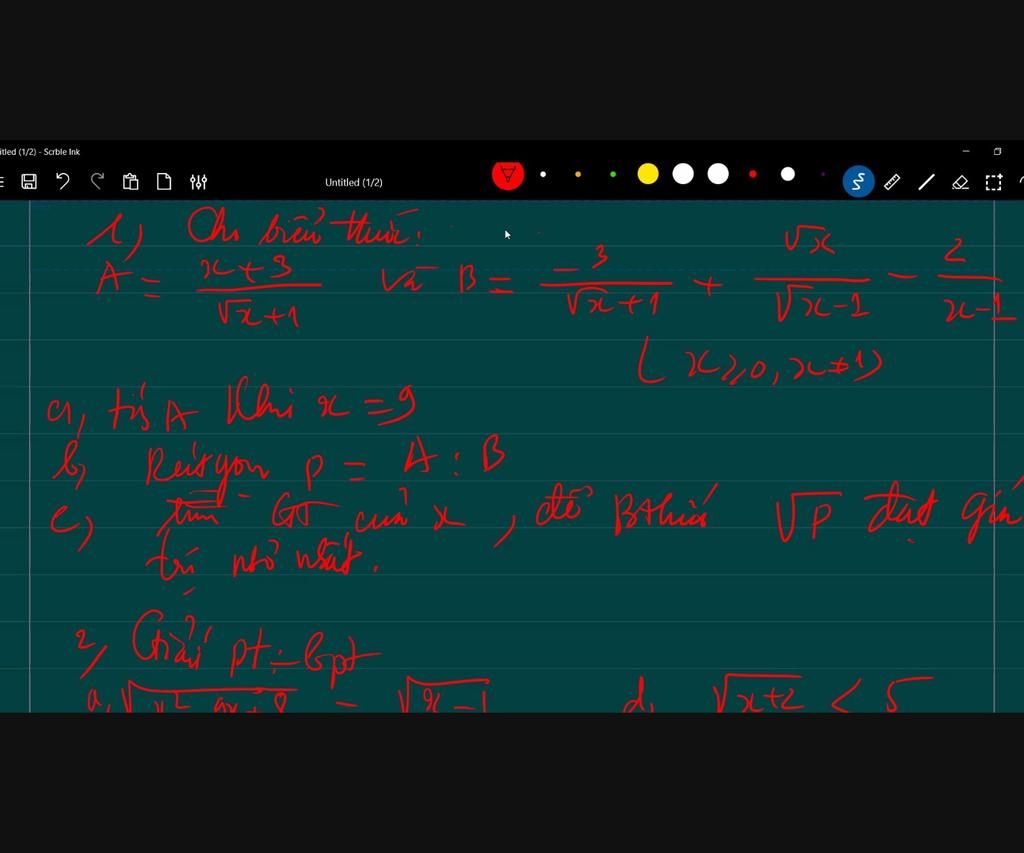 itled (1/2) - Scrble Ink
Untitled (1/2)
1) Cho biểu thức:
A = (x+3)/(√x+1) và B = -3/(√x+1) + √x/(√x-1) - 2/(x-1)
(x ≥ 0, x ≠ 1)
a, tính A khi x = 9
b, Rút gọn P = A : B
c) tìm GT của x, để Bthức √P đạt giá
trị nhỏ nhất.
2, Giải pt - bpt
a, √x² = √x-1 d, √x+2 < 5